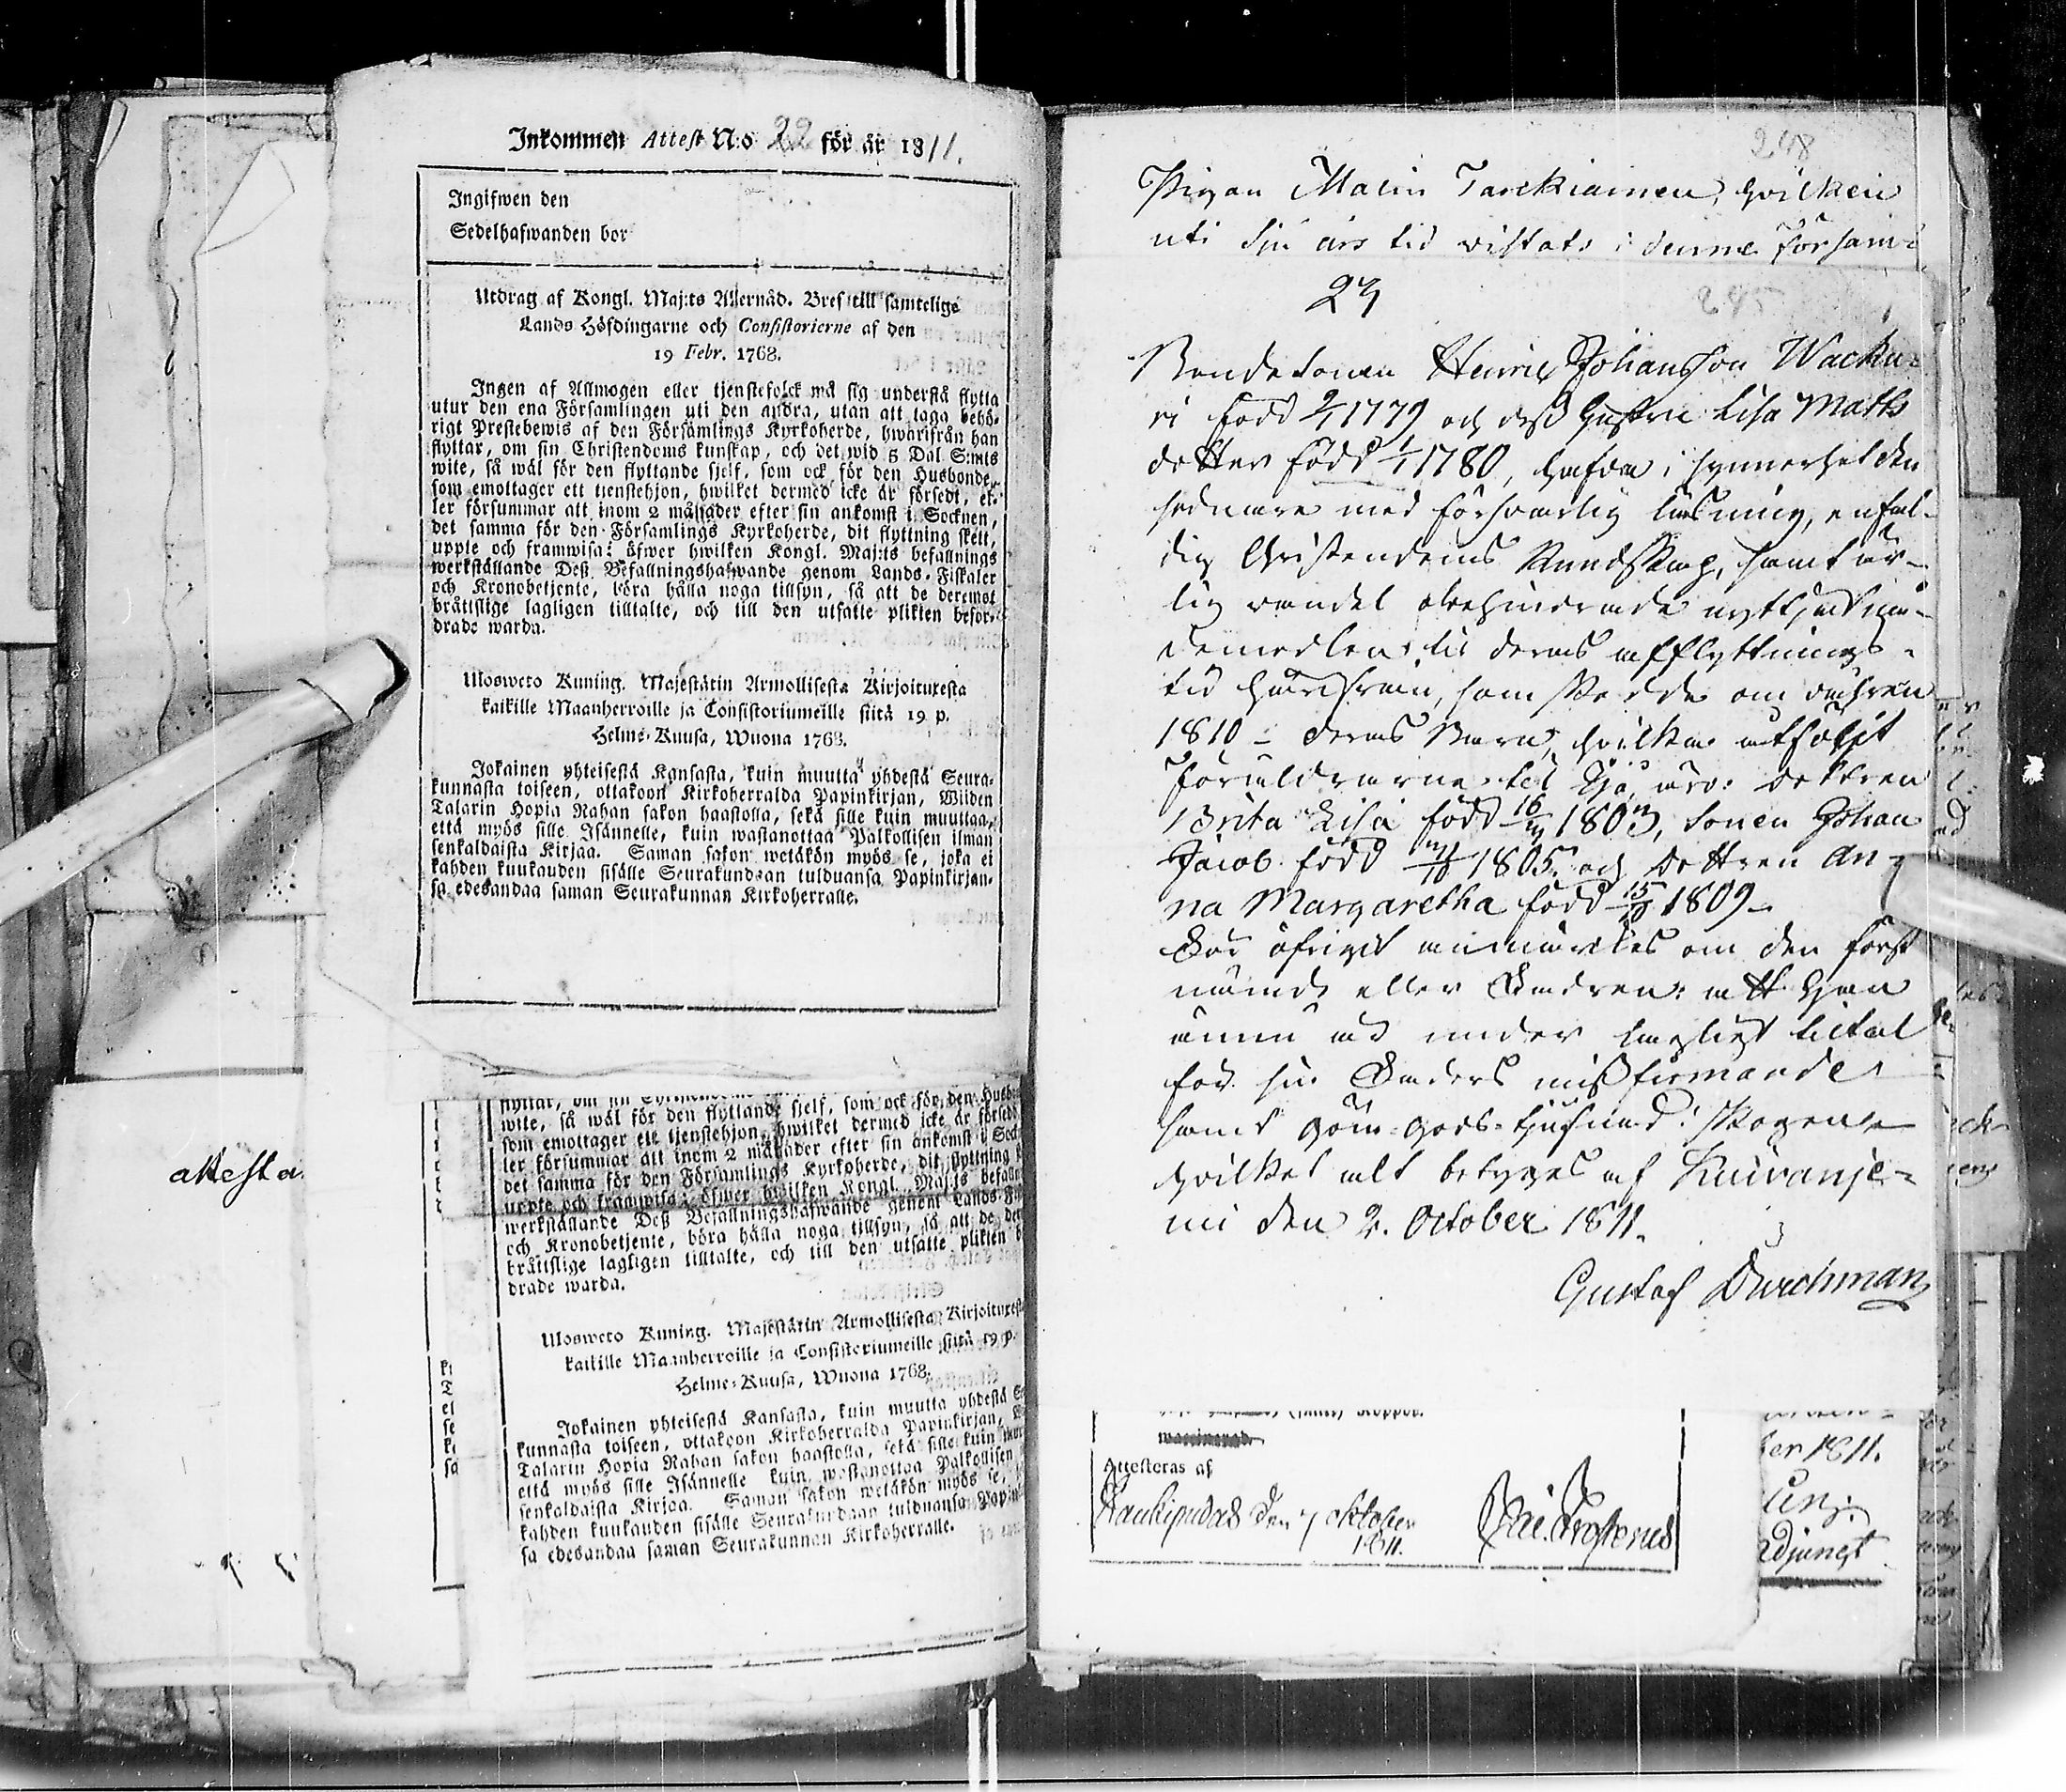 Inkommen Attest N:o 22 för år 1811.
Ingifwen den
Sedelhafwanden bor
Utdrag af Kongl. Maj:ts Allernåd. Bref till samtelige
Lands Höfdingarne och Consistorierne af den
19 Febr. 1768.
Ingen af Allmogen eller tjenstefolck må sig understå flytta
utur den ena Församlingen uti den andra, utan att taga behö-
rigt Prestebewis af den Församlings Kyrkoherde, hwarifrån han
flyttar, om sin Christendoms kunskap, och det wid 5 Dal. S:mts
wite, så wäl för den flyttande sjelf, som ock för den Husbonde,
som emottager ett tjenstehjon, hwilket dermed icke är försedt, el-
ler försummar att inom 2 månader efter sin ankomst i Socknen,
det samma för den Församlings Kyrkoherde, dit flyttning skett,
uppte och framwisa: öfwer hwilken Kongl. Maj:ts befallnings
werkställande Deß Befallningshafwande genom Lands-Fiskaler
och Kronobetjente, böra hålla noga tillsyn, så att de deremot
bråttslige lagligen tilltalte, och till den utsatte plikten befor-
drade warda.
Ulosweto Kuning. Majestätin Armollisesta Kirjoituxesta
kaikille Maanherroille ja Consistoriumeille siitä 19 p.
Helme-Kuusa, Wuona 1768.
Jokainen yhteisestä Kansasta, kuin muutta yhdestä Seura-
kunnasta toiseen, ottakoon Kirkoherralda Papinkirjan, Wiiden
Talarin Hopia Rahan sakon haastolla, sekä sille kuin muuttaa,
että myös sille Isännelle, kuin wastanottaa Palkollisen ilman
senkaldaista Kirjaa. Saman sakon wetäkön myös se, joka ei
kahden kuukauden sisälle Seurakundaan tulduansa Papinkirjan-
sa edesandaa saman Seurakunnan Kirkoherralle.
attesta
wite, så wäl för den flyttande sjelf, som ock för den
som emottager ett tjenstehjon, hwilket dermed icke är försedt
ler försummar att inom 2 månader efter sin ankomst i Sock
det samma för den Församlings Kyrkoherde, dit flyttning
uppte och framwisa: öfwer hwilken Kongl. Maj:ts befalln
werkställande Deß Befallningshafwande genom Lands-Fi
och Kronobetjente, böra hålla noga tillsyn, så att de de
bråttslige lagligen tilltalte, och till den utsatte plikten
drade warda.
Ulosweto Kuning. Majestätin Armollisesta Kirjoituxest
kaikille Maanherroille ja Consistoriumeille siitä 19 p.
Helme-Kuusa, Wuona 1768.
Jokainen yhteisestä Kansasta, kuin muutta yhdestä
kunnasta toiseen, ottakoon Kirkoherralda Papinkirjan,
Talarin Hopia Rahan sakon haastolla, sekä sille kuin
että myös sille Isännelle kuin wastanottaa Palkollisen
senkaldaista Kirjaa. Saman sakon wetäkön myös se,
kahden kuukauden sisälle Seurakundaan tulduansa
sa edesandaa saman Seurakunnan Kirkoherralle.
248
Pigan Malin Tarckiainen, hvilken
uti sju års tid vistats i denne Försam-
23
245
Bondesonen Henric Johansson Wacku-
ri född 2/1 1779 och deß hustru Lisa Mats
dotter född 1/1 1780, hafva i synnerhet den
sednare med försvarlig läsning, enfal-
dig Christendoms Kundskap, samt är-
lig vandel obehindrade nyttjat nå-
demedlen til deras afflyttnings-
tid härifrån, som skedde om våhren
1810 - deras Barn, hvilka
Föräldrarne äro: dottren
Brita Lisa född 1803, sonen Johan
Jacob född 1805 och Dottren An-
na Margaretha född 15/10 1809 -
För öfrigit anmärkes om den först
nämnde eller Fadren: att han
ännu är under lagligt tiltal
för sin Faders mißfirmande
samt
hvilket alt betyges af Kuivanie-
mi den 2. October 1811.
Gustaf Durchman
Attesteras af
Haukipudas den 7 oktober
1811.
ber 1811.
adjunct